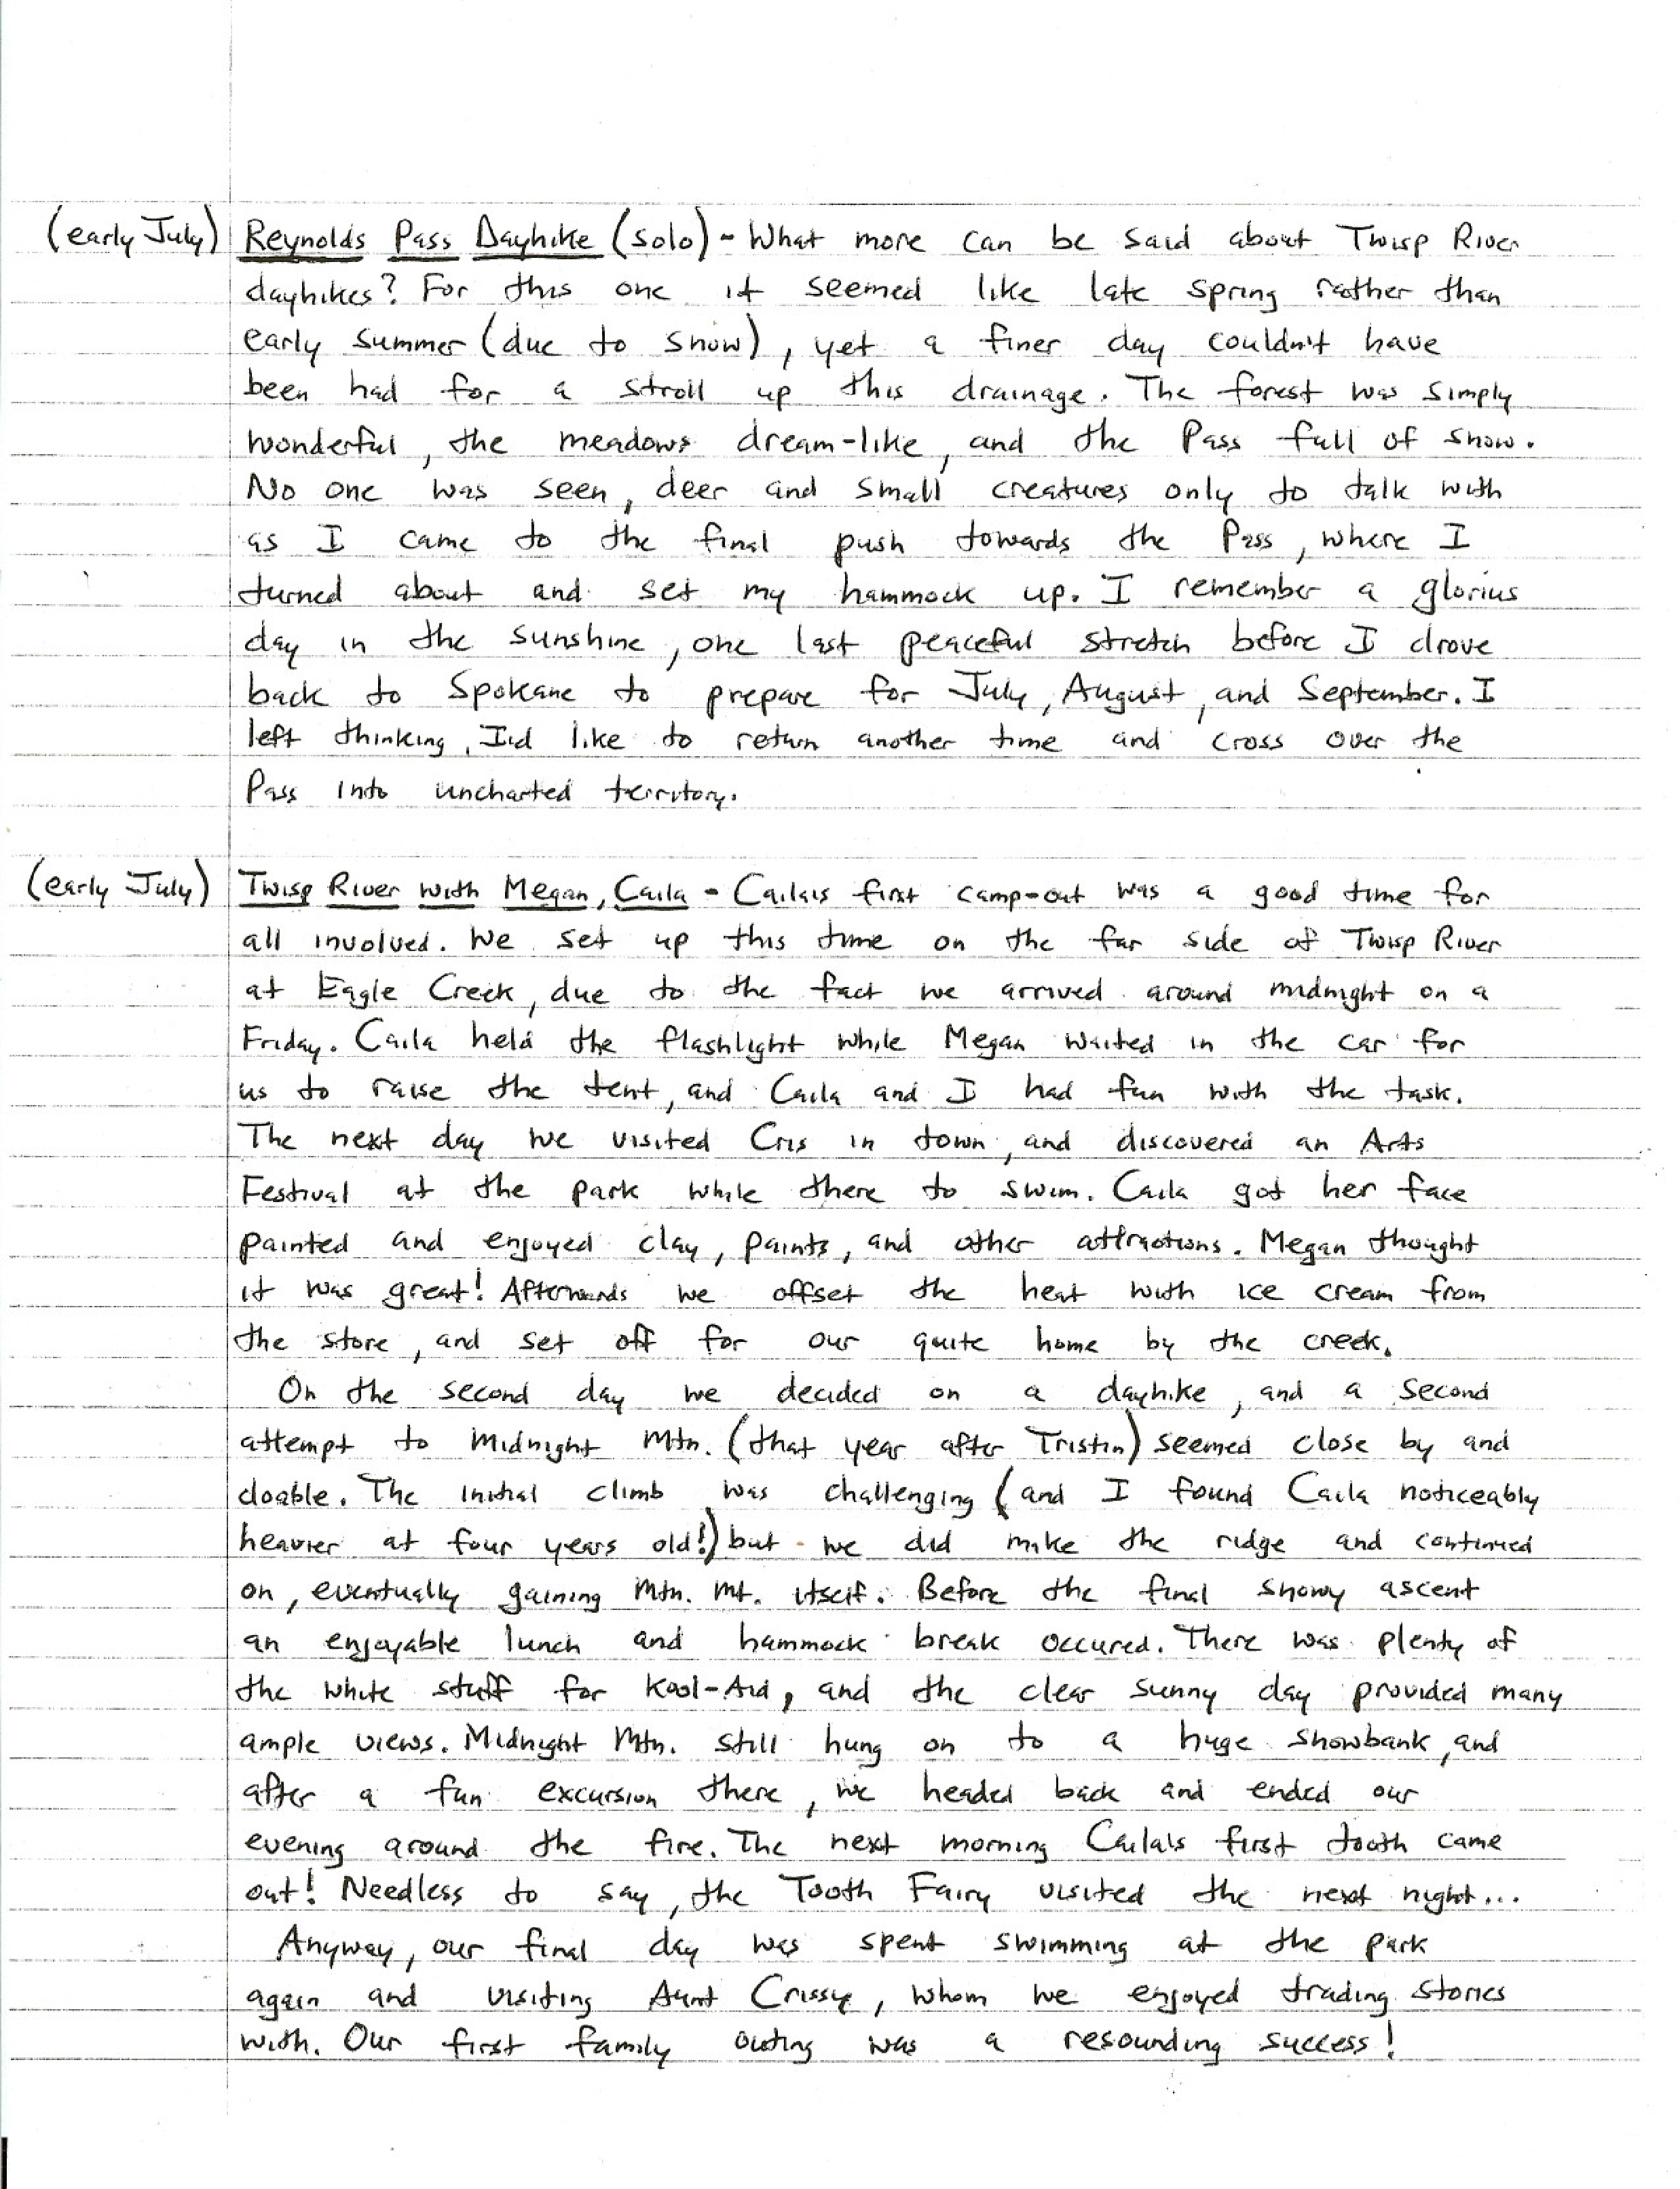 (early July) Reynolds Pass Dayhike (solo) - What more can be said about Twisp River
dayhikes? For this one it seemed like late spring rather than
early summer (due to snow), yet a finer day couldn't have
been had for a stroll up this drainage. The forest was simply
wonderful, the meadows dream-like, and the Pass full of snow.
No one was seen, deer and small creatures only to talk with
as I came to the final push towards the Pass, where I
turned about and set my hammock up. I remember a glorius
day in the sunshine, one last peaceful stretch before I drove
back to Spokane to prepare for July, August, and September. I
left thinking, I'd like to return another time and cross over the
Pass into uncharted territory.
(early July) Twisp River with Megan, Caila - Caila's first camp-out was a good time for
all involved. We set up this time on the far side of Twisp River
at Eagle Creek, due to the fact we arrived around midnight on a
Friday. Caila held the flashlight while Megan waited in the car for
us to raise the tent, and Caila and I had fun with the task.
The next day we visited Cris in town, and discovered an Arts
Festival at the park while there to swim. Caila got her face
painted and enjoyed clay, paints, and other attractions. Megan thought
it was great! Afterwards we offset the heat with ice cream from
the store, and set off for our quite home by the creek.
On the second day we decided on a dayhike, and a second
attempt to Midnight Mtn. (that year after Tristin) seemed close by and
doable. The initial climb was challenging (and I found Caila noticeably
heavier at four years old!) but we did make the ridge and continued
on, eventually gaining Mtn. Mt. itself. Before the final snowy ascent
an enjoyable lunch and hammock break occured. There was plenty of
the white stuff for Kool-Aid, and the clear sunny day provided many
ample views. Midnight Mtn. still hung on to a huge snowbank, and
after a fun excursion there, we headed back and ended our
evening around the fire. The next morning Caila's first tooth came
out! Needless to say, the Tooth Fairy visited the next night...
Anyway, our final day was spent swimming at the park
again and visiting Aunt Crissy, whom we enjoyed trading stories
with. Our first family outing was a resounding success!